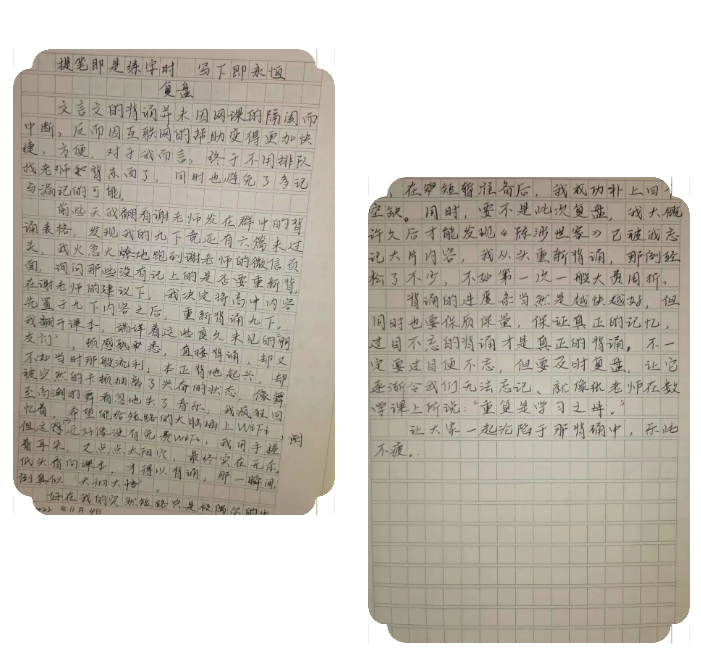 提笔即是练字时 写下即永恒
复盘
文言文的背诵并未因网课的隔阂而
中断，反而因互联网的帮助变得更加快
捷、方便。对于我而言，终于不用排队
找老师背东西了，同时也避免了多记
与漏记的可能。
前些天我翻看谢老师发在群中的背
诵表格，发现我的九下竟还有六篇未过
关。我火急火燎地跑到谢老师的微信页
面，询问那些没有记上的是否要重新背。
在谢老师的建议下，我决定将高中内容
先置于九下内容之后，重新背诵九下。
我翻开课本，端详着这些良久未见的“朋
友们”，顿感熟悉，直接背诵，却又
不如当时那般流利，本正背地起兴，却
被突然的卡顿抽离了兴奋的状态，像舞
至高潮的舞者忽地失了音乐。我疯狂回
忆着，希望能给短路的大脑插上WiFi，
但这附近好像没有免费WiFi，我用手揉
着耳朵，又点点太阳穴，最终实在无奈，
低头看向课本，才得以背诵，那一瞬间
倒真似“大彻大悟”。
好在我的突然短路只是极偶尔的
11月
在短暂准备后，我成功补上回个
空缺。同时，要不是此次复盘，我大概
许久后才能发现《陈涉世家》已被我忘
记大片内容，我从头重新背诵，那倒轻
松了不少，不如第一次一般大费周折。
背诵的进度条当然是越快越好，但
同时也要保质保量，保证真正的记忆，
过目不忘的背诵才是真正的背诵。不一
定要过目便不忘，但要及时复盘，让它
逐渐令我们无法忘记。就像张老师在数
学课上所说：“重复是学习之母。”
让大家一起沦陷于那背诵中，乐此
不疲。